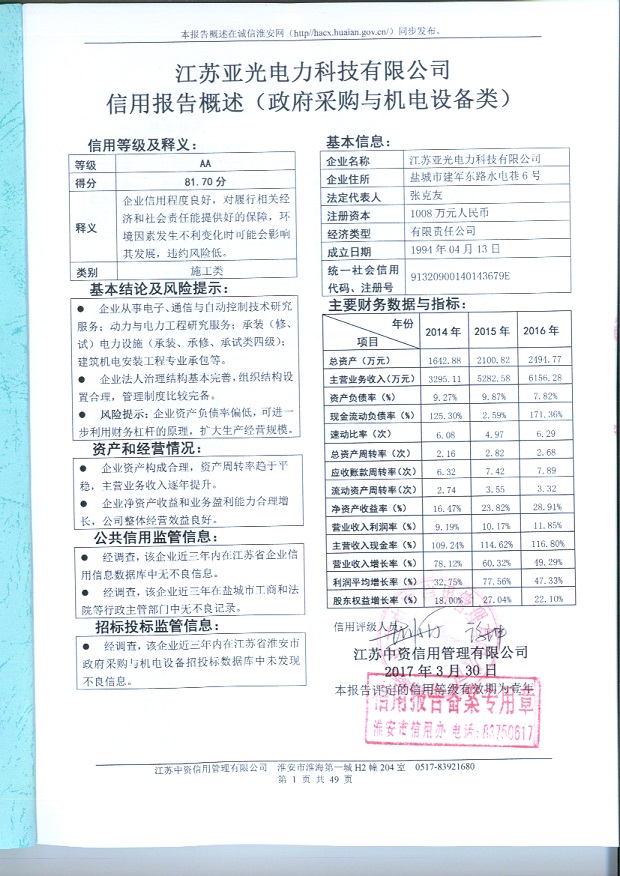 本报告概述在诚信淮安网（http//hacx.huaian.gov.cn/）同步发布。
江苏亚光电力科技有限公司
信用报告概述（政府采购与机电设备类）
信用等级及释义：
等级 AA
得分 81.70 分
释义 企业信用程度良好，对履行相关经
济和社会责任能提供好的保障，环
境因素发生不利变化时可能会影响
其发展，违约风险低。
类别 施工类
基本结论及风险提示：
● 企业从事电子、通信与自动控制技术研究
服务；动力与电力工程研究服务；承装（修、
试）电力设施（承装、承修、承试类四级）；
建筑机电安装工程专业承包等。
● 企业法人治理结构基本完善，组织结构设
置合理，管理制度比较完备。
● 风险提示：企业资产负债率偏低，可进一
步利用财务杠杆的原理，扩大生产经营规模。
资产和经营情况：
● 企业资产构成合理，资产周转率趋于平
稳，主营业务收入逐年提升。
● 企业净资产收益和业务盈利能力合理增
长，公司整体经营效益良好。
公共信用监管信息：
● 经调查，该企业近三年内在江苏省企业信
用信息数据库中无不良信息。
● 经调查，该企业近三年在盐城市工商和法
院等行政主管部门中无不良记录。
招标投标监管信息：
● 经调查，该企业近三年内在江苏省淮安市
政府采购与机电设备招投标数据库中未发现
不良信息。
基本信息：
企业名称 江苏亚光电力科技有限公司
企业住所 盐城市建军东路水电巷 6 号
法定代表人 张克友
注册资本 1008 万元人民币
经济类型 有限责任公司
成立日期 1994 年 04 月 13 日
统一社会信用
代码、注册号 91320900140143679E
主要财务数据与指标：
年份 项目 2014 年 2015 年 2016 年
总资产（万元） 1642.88 2100.82 2494.77
主营业务收入(万元) 3295.11 5282.58 6156.28
资产负债率（%） 9.27% 9.87% 7.82%
现金流动负债率（%） 125.30% 2.59% 171.36%
速动比率（次） 6.08 4.97 6.29
总资产周转率（次） 2.16 2.82 2.68
应收账款周转率(次) 6.32 7.42 7.89
流动资产周转率（次） 2.74 3.55 3.32
净资产收益率（%） 16.47% 23.82% 28.91%
营业收入利润率（%） 9.19% 10.17% 11.85%
主营收入现金率（%） 109.24% 114.62% 116.80%
营业收入增长率（%） 78.12% 60.32% 49.29%
利润平均增长率（%） 32.75% 77.56% 47.33%
股东权益增长率（%） 18.00% 27.04% 22.10%
信用评级人员：
江苏中资信用管理有限公司
2017 年 3 月 30 日
本报告评定的信用等级有效期为壹年
信用报告备案专用章
淮安市信用办 电话:83750617
江苏中资信用管理有限公司 淮安市淮海第一城 H2 幢 204 室 0517-83921680
第 1 页 共 49 页